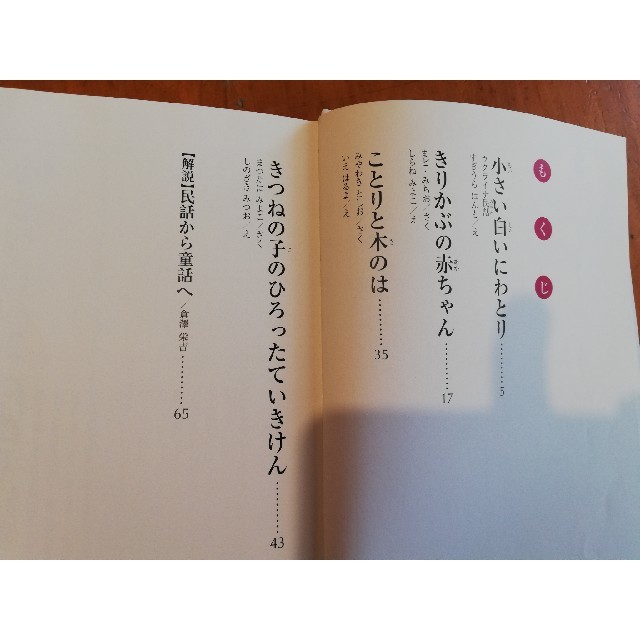 もくじ
小さい白いにわとり…………5
ウクライナ民話
すぎうら はんも／え
きりかぶの赤ちゃん…………17
まど・みちお／さく
しらね みよこ／え
ことりと木のは…………35
みやわき としお／さく
いえ はるよ／え
きつねの子のひろったていきけん…………43
まつたに みよこ／さく
しのざき みつお／え
【解説】民話から童話へ／倉澤 栄吉…………65